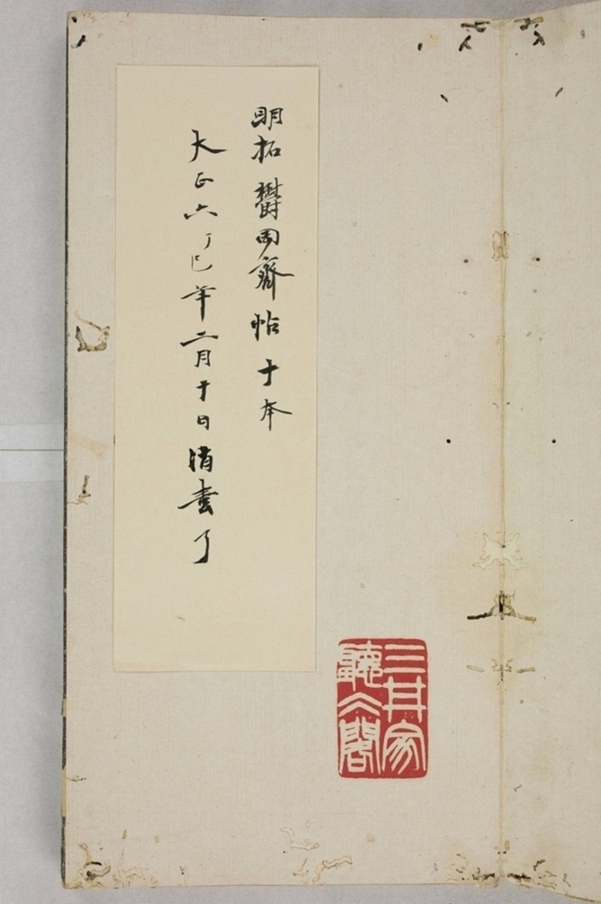 明拓鬱岡齋帖十本
大正六丁巳年二月十日消了
三井家
聽冰閣